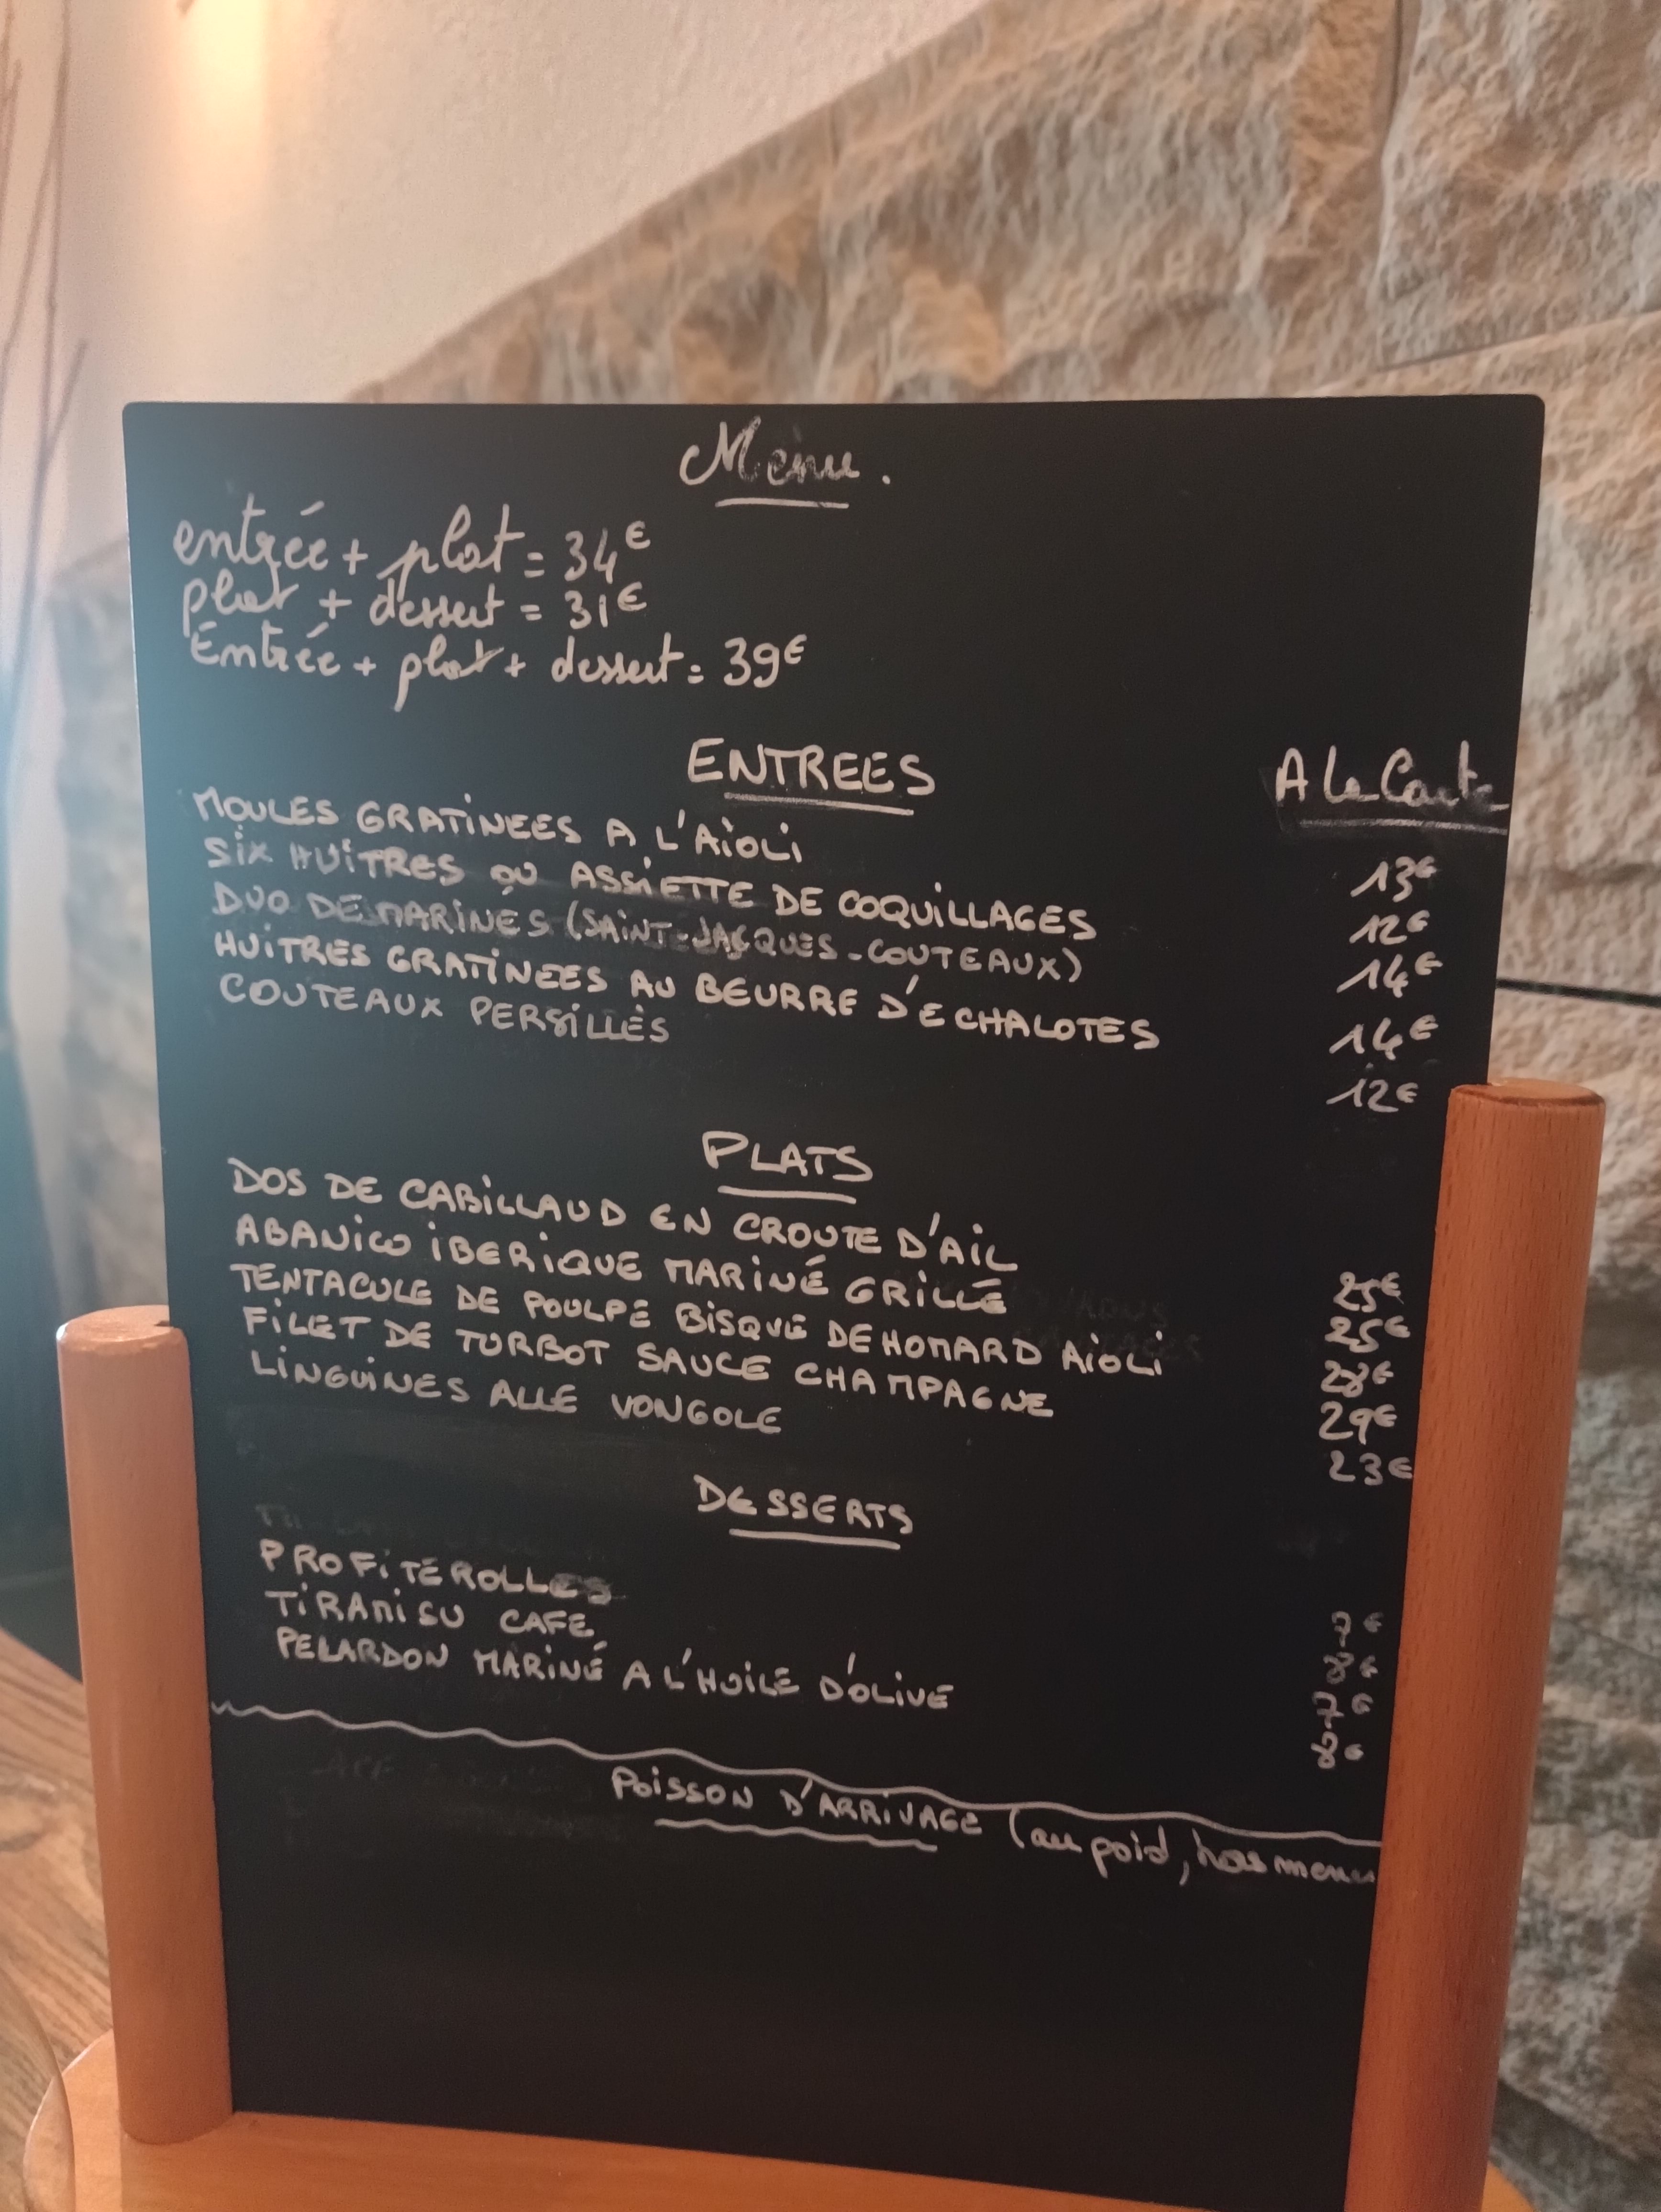 Menu.
entrée + plat = 34€
plat + dessert = 31€
Entrée + plat + dessert = 39€
ENTREES
A la Carte
MOULES GRATINEES A L'AÏOLI 13€
SIX HUITRES OU ASSIETTE DE COQUILLAGES 12€
DUO DE MARINES (SAINT-JACQUES-COUTEAUX) 14€
HUITRES GRATINEES AU BEURRE D'ECHALOTES 14€
COUTEAUX PERSILLÉS 12€
PLATS
DOS DE CABILLAUD EN CROUTE D'AIL 25€
ABANICO IBERIQUE MARINÉ GRILLÉ 25€
TENTACULE DE POULPE BISQUE DE HOMARD AIOLI 28€
FILET DE TURBOT SAUCE CHAMPAGNE 29€
LINGUINES ALLE VONGOLE 23€
DESSERTS
PROFITEROLLES 7€
TIRAMISU CAFE 8€
PELARDON MARINÉ A L'HUILE D'OLIVE 7€
8€
POISSON D'ARRIVAGE (au poid, hors menu